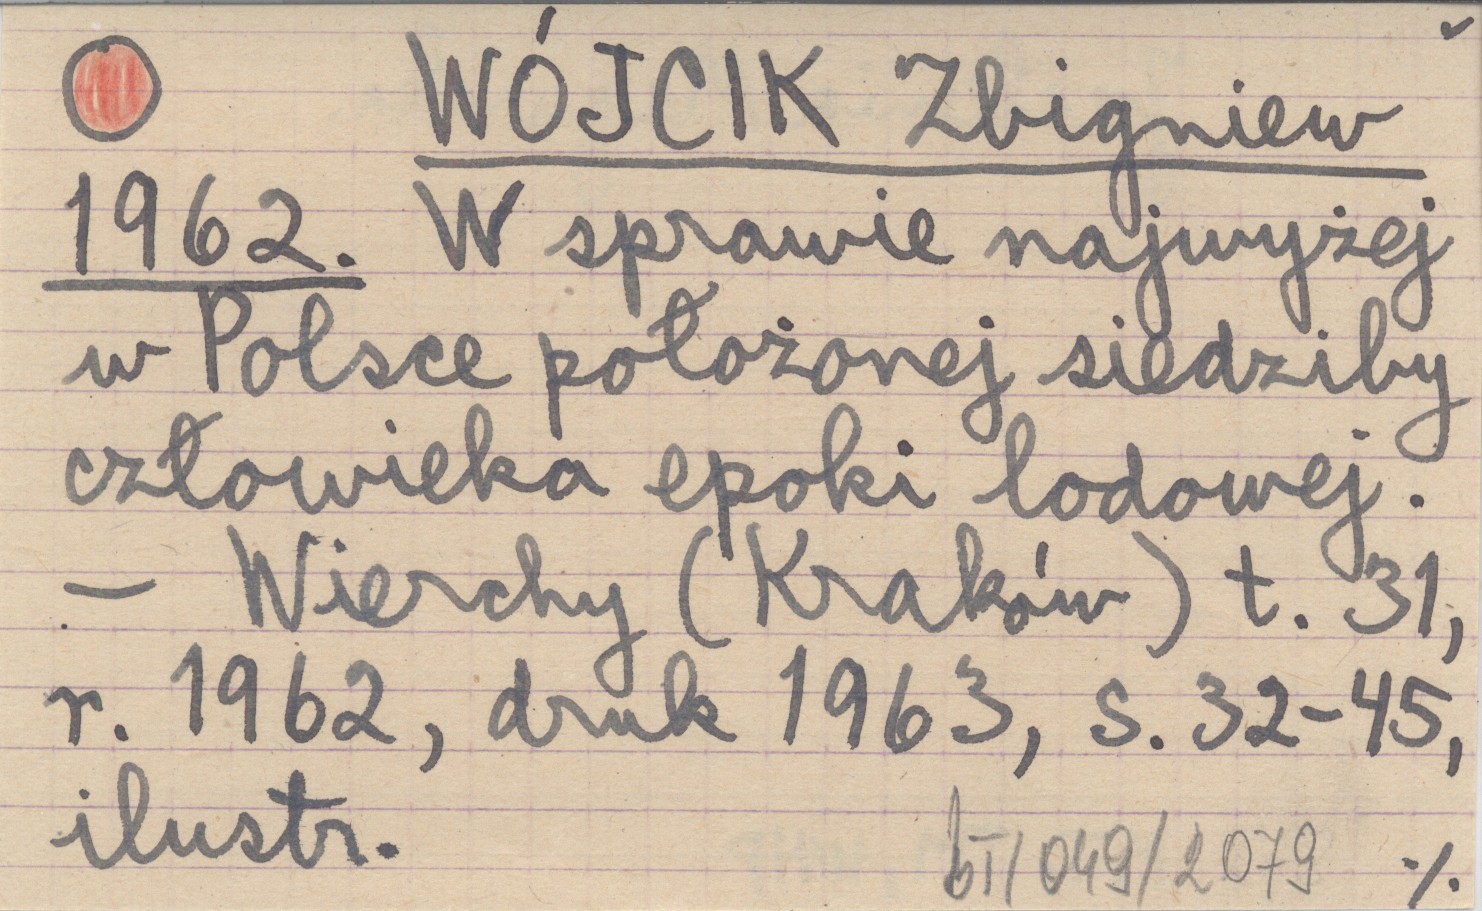 WÓJCIK Zbigniew
1962. W sprawie najwyżej
w Polsce położonej siedziby
człowieka epoki lodowej.
– Wierchy (Kraków) t. 31,
r. 1962, druk 1963, s. 32-45,
ilustr.
bT/049/2079 ./.